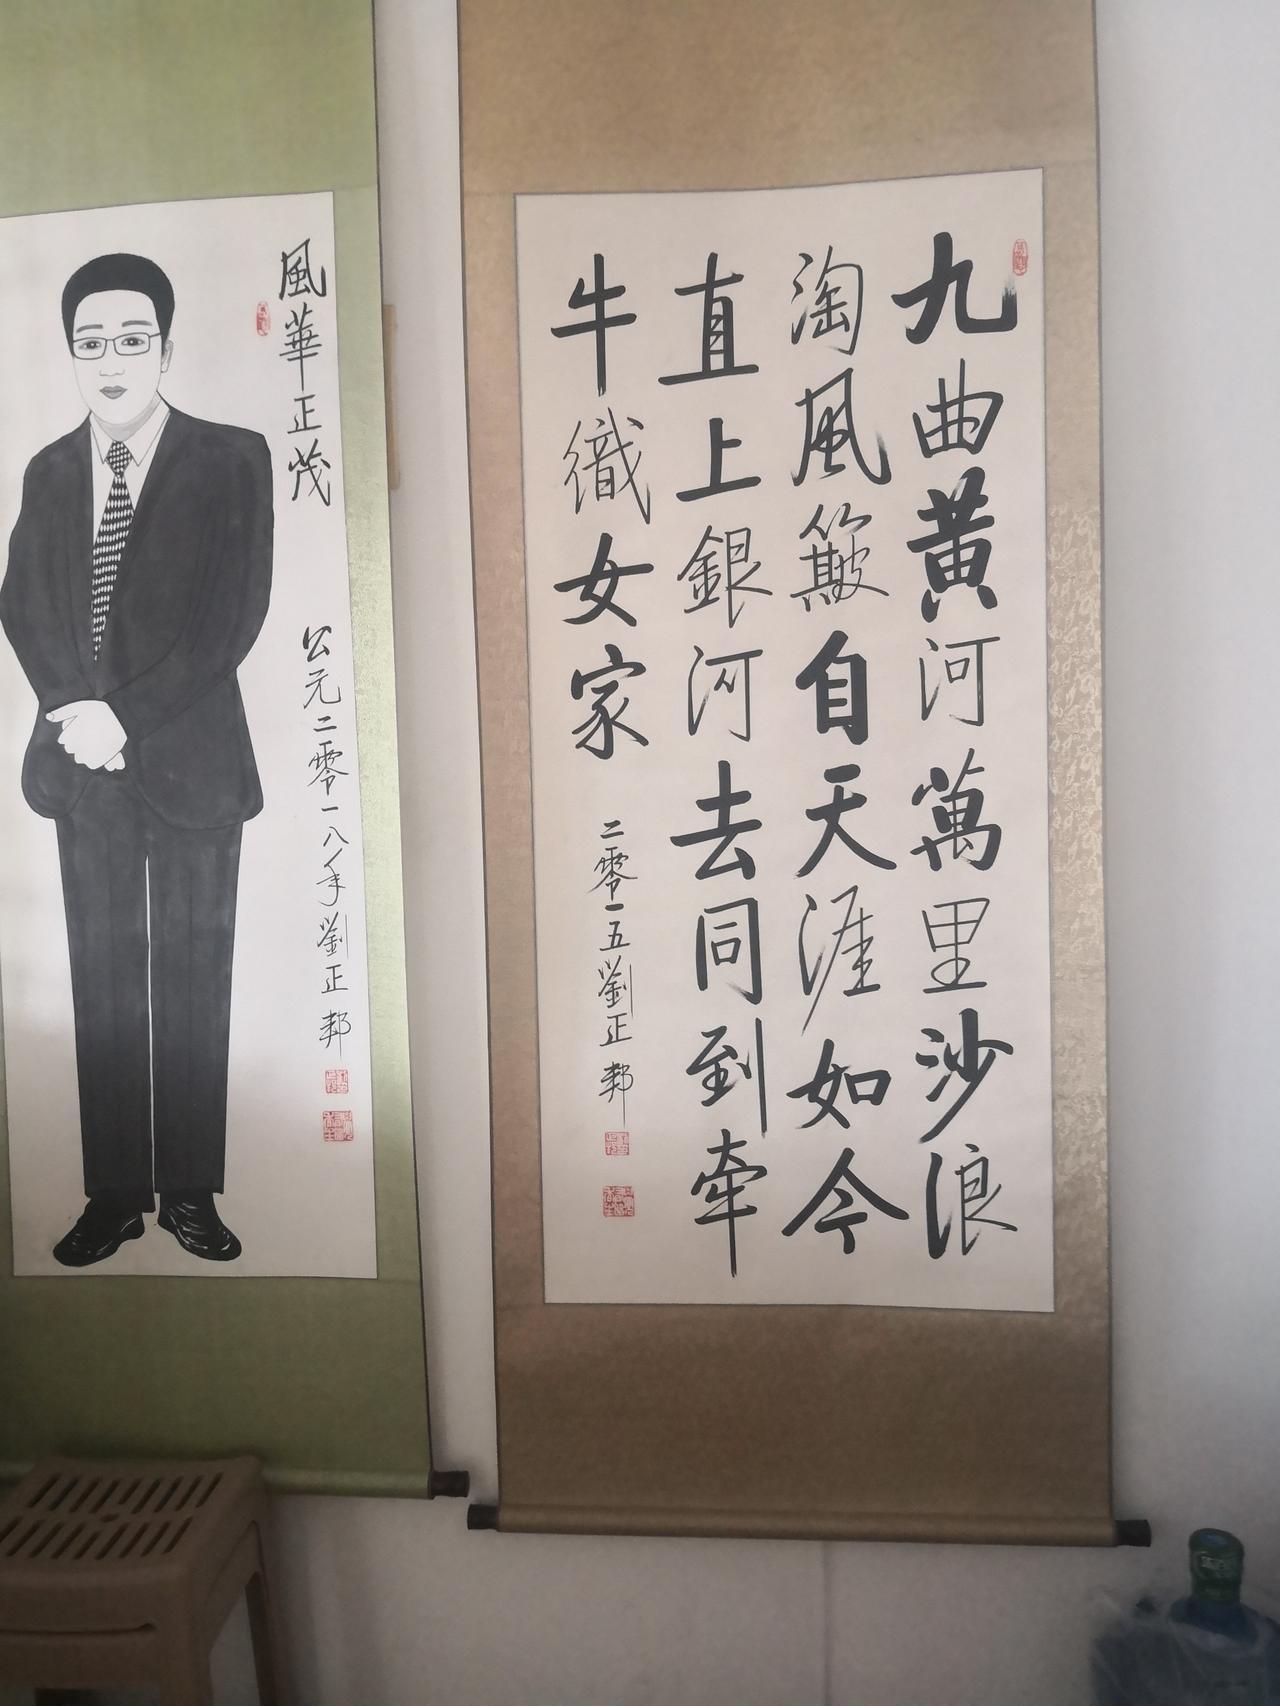 九曲黃河萬里沙浪
淘風簸自天涯如今
直上銀河去同到牽
牛織女家
二零一五劉正邦
風華正茂
公元二零一八年劉正邦